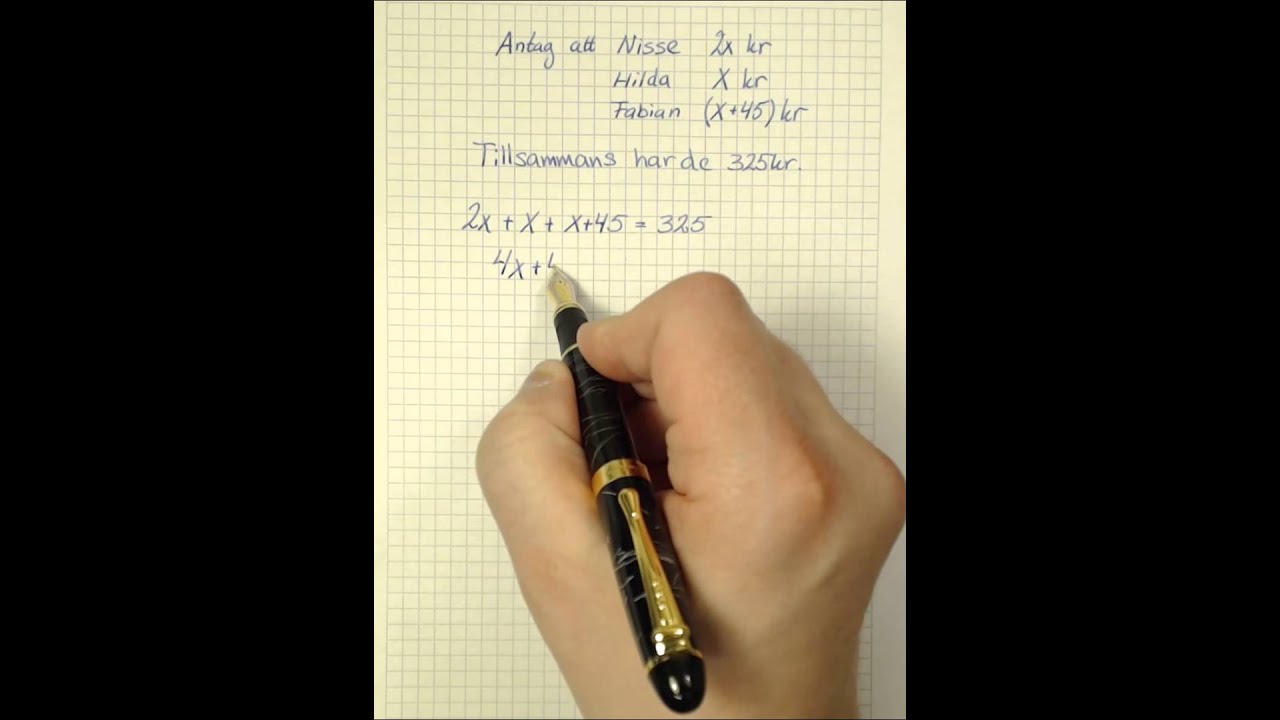 Antag att Nisse 2x kr
Hilda x kr
Fabian (x+45) kr
Tillsammans har de 325kr.
2x + x + x+45 = 325
4x + 4